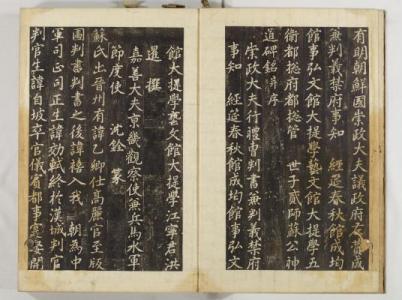 有明朝鮮國崇政大夫議政府左贊成
兼判義禁府事知 經筵春秋館成均
館事弘文館大提學藝文館大提學五
衛都摠府都摠管 世子貳師蘇公神
道碑銘并序
崇政大夫行禮曹判書兼判義禁府
事知 經筵春秋館成均館事弘文
館大提學藝文館大提學江寧君洪
暹 撰
嘉善大夫京畿觀察使兼兵馬水軍
節度使 沈銓 篆
蘇氏出晉州有諱乙卿仕高麗官至版
圖判書判書之後諱禧入我 朝為中
軍司正司正生諱効軾終於漢城判官
判官生諱自坡卒官儀賓都事